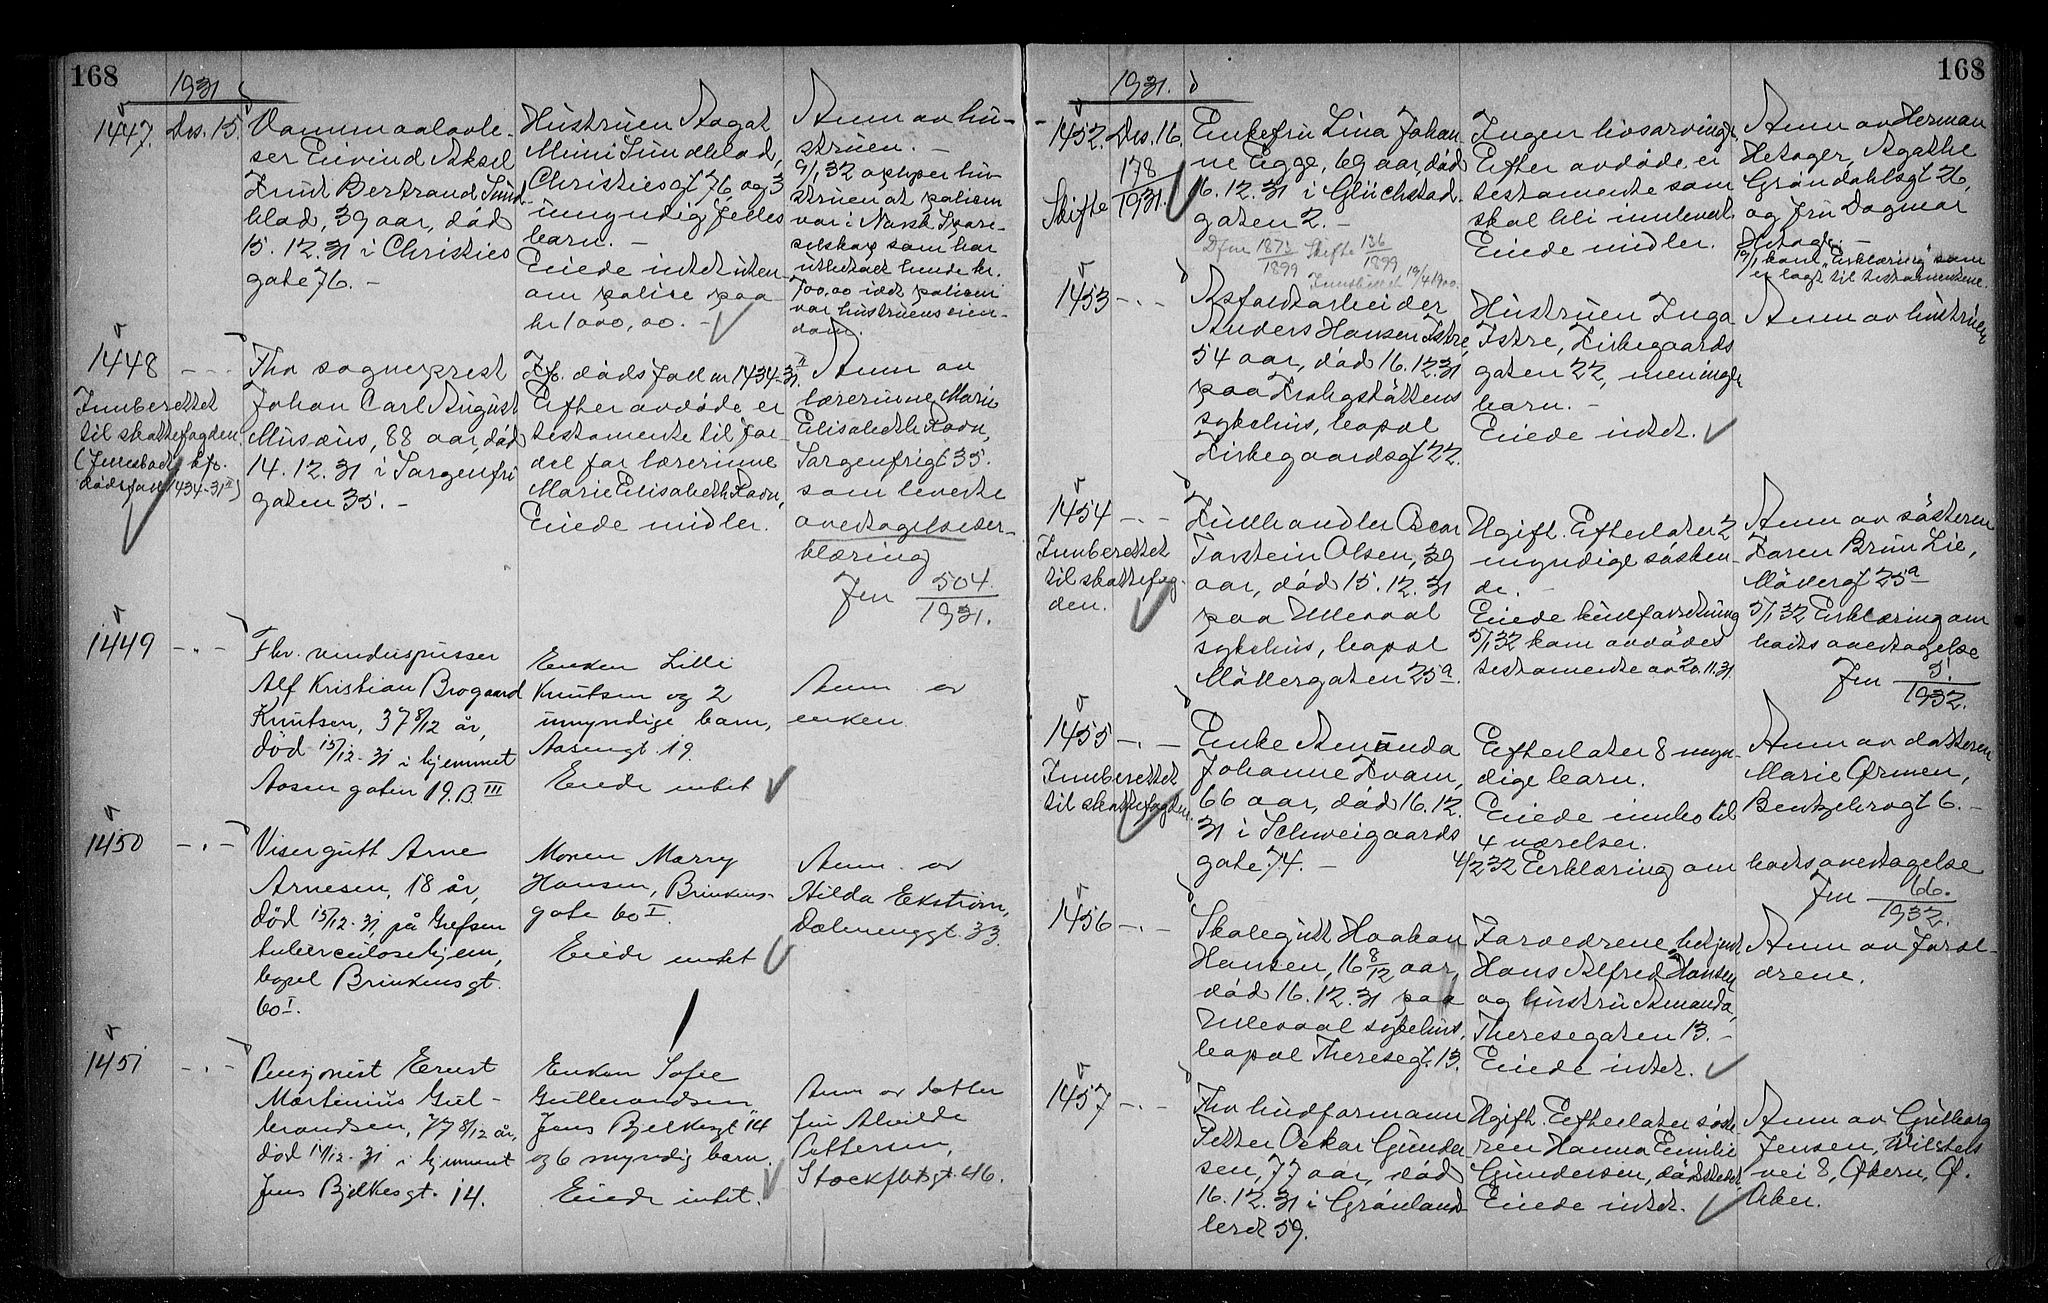 168
1931
1447. Des. 15.
Vannmaalavle-
ser Eivind Aksel
Knut Bertrand Sund-
blad, 39 aar, død
15.12.31 i Christies
gate 76. -
Hustruen Aagot
Mimi Sundblad,
Christiesgt 76, og 3
umyndig felles
barn. -
Eiede intet uten-
om polise paa
kr 1000,00. -
Anm av hu-
struen. -
9/1 32 oplyser hu-
struen at polisen
var i Norsk Spare-
selskap som har
utbetalt hende kr.
700,00 idet polisen
var hustruens eien-
dom.
1448 - - -
Innberettet
til skattefogden
(Innsbodt, kfr.
dødsfall 1434-31 II)
Fhv sogneprest
Johan Carl August
Musæus, 88 aar, død
14.12.31 i Sorgenfri
gaten 35. -
Kfr. dødsfall nr 1434-31 II
Efter avdøde er
testamente til for-
del for lærerinne
Marie Elisabeth Ravn,
Eiede midler.
Anm av
lærerinne Marie
Elisabeth Ravn,
Sorgenfrigt 35.
som leverte
overtagelseser-
klæring
Jnr 504.
1931.
1449 - . -
Fhv. vinduspusser
Alf Kristian Brogaard
Knutsen, 37 8/12 år,
død 15/12-31 i hjemmet
Aasengaten 19.B. III
Enken Lilli
Knutsen og 2
umyndige barn,
Aasengt. 19.
Eiede intet
Anm av
enken.
1450 - . -
Visergutt Arne
Arnesen, 18 år,
død 15/12-31, på Grefsen
tuberculosehjem,
bopel Brinkens gt.
60 I.
Moren Marry
Hansen, Brinkens-
gate 60 I.
Eiede intet
Anm. av
Hilda Ekstrøm,
Dælenenggt. 33.
1451 - . -
Pensjonist Ernst
Martinius Gul-
brandsen, 77 8/12 år,
død 14/12-31 i hjemmet
Jens Bjelkesgt. 14.
Enken Sofie
Gulbrandsen
Jens Bjelkesgt 14
og 6 myndig barn.
Eiede intet.
Anm av datter
fru Alvilde
Pettersen,
Stockfletsgt. 46.
168
1931.
1452. Des. 16.
Skifte 178
1931.
Enkefru Lina Johan-
ne Egge, 69 aar, død
16.12.31 i Glückstad-
gaten 2. -
Dfnr 1873 Skifte 136
1899 1899
Ingen livsarvinge
Efter avdøde er
testamente som
skal bli innlevert.
Eiede midler.
Anm av Herman
Hetager, Agathe
Grøndahlsgt 26,
og fru Dagmar
Hetager. -
19/1 kom "Erklæring" som
er lagt til testamentene.
1453 - . -
Asfaltarbeider
Anders Hansen Istre,
54 aar, død 16.12.31
paa Krohgstøttens
sykehus, bopæl
Kirkegaardsgt 22.
Hustruen Inga
Istre, Kirkegaards
gaten 22, men ingen
barn. -
Eiede intet.
Anm av hustruen
1454 - . -
Innberettet
til skattefog-
den.
Kullhandler Oscar
Torstein Olsen, 39
aar, død 15.12.31
paa Ullevaal
sykehus, bopæl
Møllergaten 25 a.
Ugift. Efterlater 2
myndige søsken-
de. -
Eiede kullforretning
5/1 32 kom avdødes
testamente av 20.11.31.
Anm av søsteren
Karen Brun Lie,
Møllergt 25 a
5/1 32 Erklæring om
boets overtagelse
Jnr 5.
1932.
1455 - . -
Innberettet
til skattefogden.
Enke Amunda
Johanne Kvam,
66 aar, død 16.12.
31 i Schweigaards
gate 74. -
Efterlater 8 myn-
dige barn.
Eiede innbo til
4 værelser.
4/2 32 Erklæring om boets overtagelse
Anm av datteren
Marie Ørmen,
Bentzebrogt 6. -
Jnr 66.
1932.
1456 - . -
Skolegutt Haakon
Hansen, 16 8/12 aar,
død 16.12.31 paa
Ullevaal sykehus,
bopæl Theresegt. 13.
Forældrene, betjent
Hans Alfred Hansen
og hustru Amanda,
Theresegaten 13. -
Eiede intet.
Anm av foræl-
drene.
1457 - . -
Fhv hudformann
Petter Oskar Gunder
sen, 77 aar, død
16.12.31 i Grønlands
leret 59.
Ugift. Efterlater søste
ren Hanna Emilie
Gundersen, dødsstedet
Eiede intet.
Anm av Gulborg
Jensen, Wilstels
vei 8, Økern, Ø.
Aker.